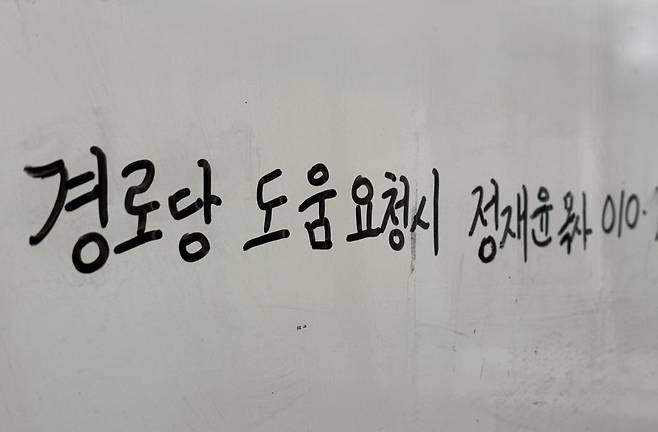 경로당 도움 요청시 정재윤 목사 010.